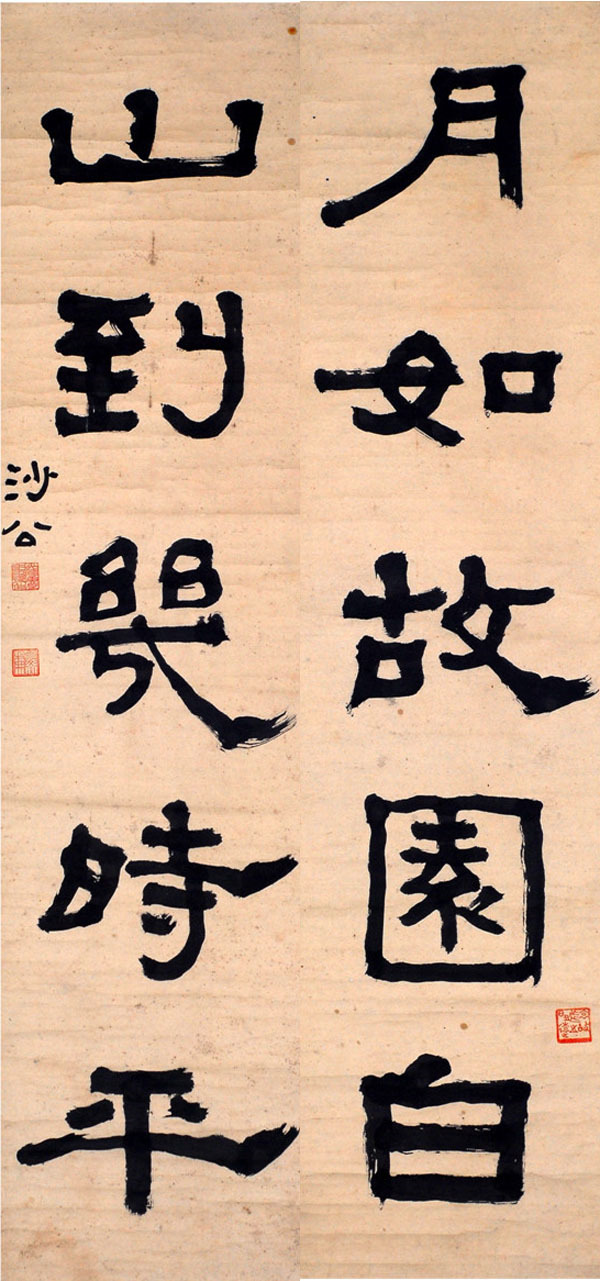 月如故園白
山到時平
沙公